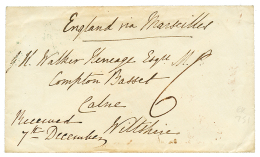 England via Marseilles
G. H. Walker Heneage Esqre M.P.
Compton Basset
Calne
Wiltshire
Received
7th December
6